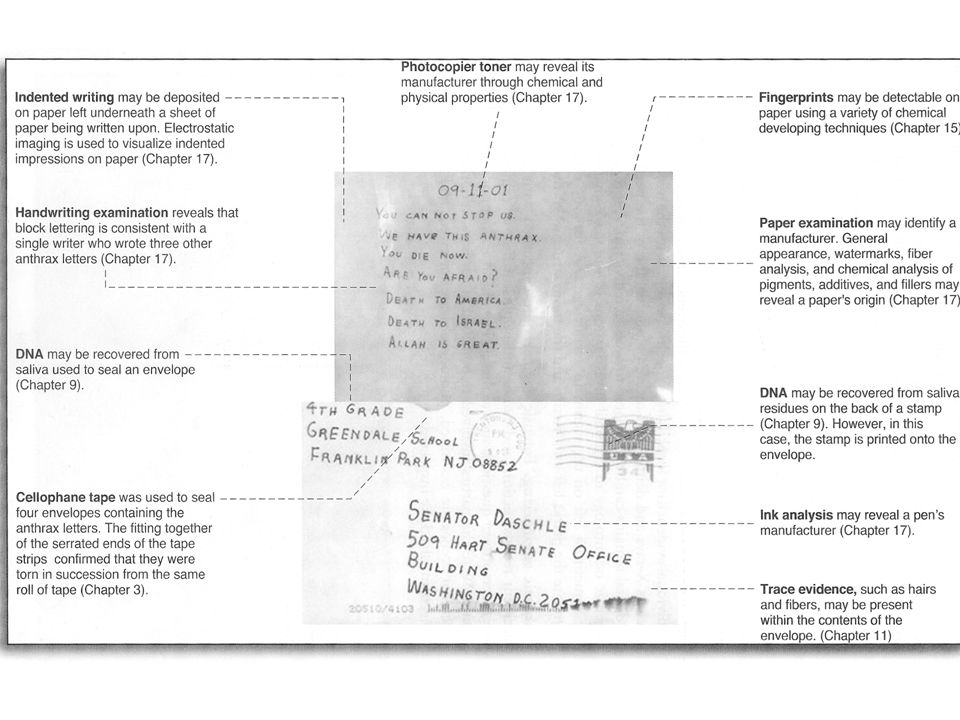 Photocopier toner may reveal its
manufacturer through chemical and
physical properties (Chapter 17).
Indented writing may be deposited
on paper left underneath a sheet of
paper being written upon. Electrostatic
imaging is used to visualize indented
impressions on paper (Chapter 17).
Handwriting examination reveals that
block lettering is consistent with a
single writer who wrote three other
anthrax letters (Chapter 17).
DNA may be recovered from
saliva used to seal an envelope
(Chapter 9).
Cellophane tape was used to seal
four envelopes containing the
anthrax letters. The fitting together
of the serrated ends of the tape
strips confirmed that they were
torn in succession from the same
roll of tape (Chapter 3).
09-11-01
YOU CAN NOT STOP US.
WE HAVE THIS ANTHRAX.
YOU DIE NOW.
ARE YOU AFRAID?
DEATH TO AMERICA.
DEATH TO ISRAEL.
ALLAH IS GREAT.
4TH GRADE
GREENDALE SCHOOL
FRANKLIN PARK NJ 08852
USA
34
SENATOR DASCHLE
509 HART SENATE OFFICE
BUILDING
WASHINGTON D.C. 
20510/4103
Fingerprints may be detectable on
paper using a variety of chemical
developing techniques (Chapter 15)
Paper examination may identify a
manufacturer. General
appearance, watermarks, fiber
analysis, and chemical analysis of
pigments, additives, and fillers may
reveal a paper's origin (Chapter 17)
DNA may be recovered from saliva
residues on the back of a stamp
(Chapter 9). However, in this
case, the stamp is printed onto the
envelope.
Ink analysis may reveal a pen's
manufacturer (Chapter 17).
Trace evidence, such as hairs
and fibers, may be present
within the contents of the
envelope. (Chapter 11)